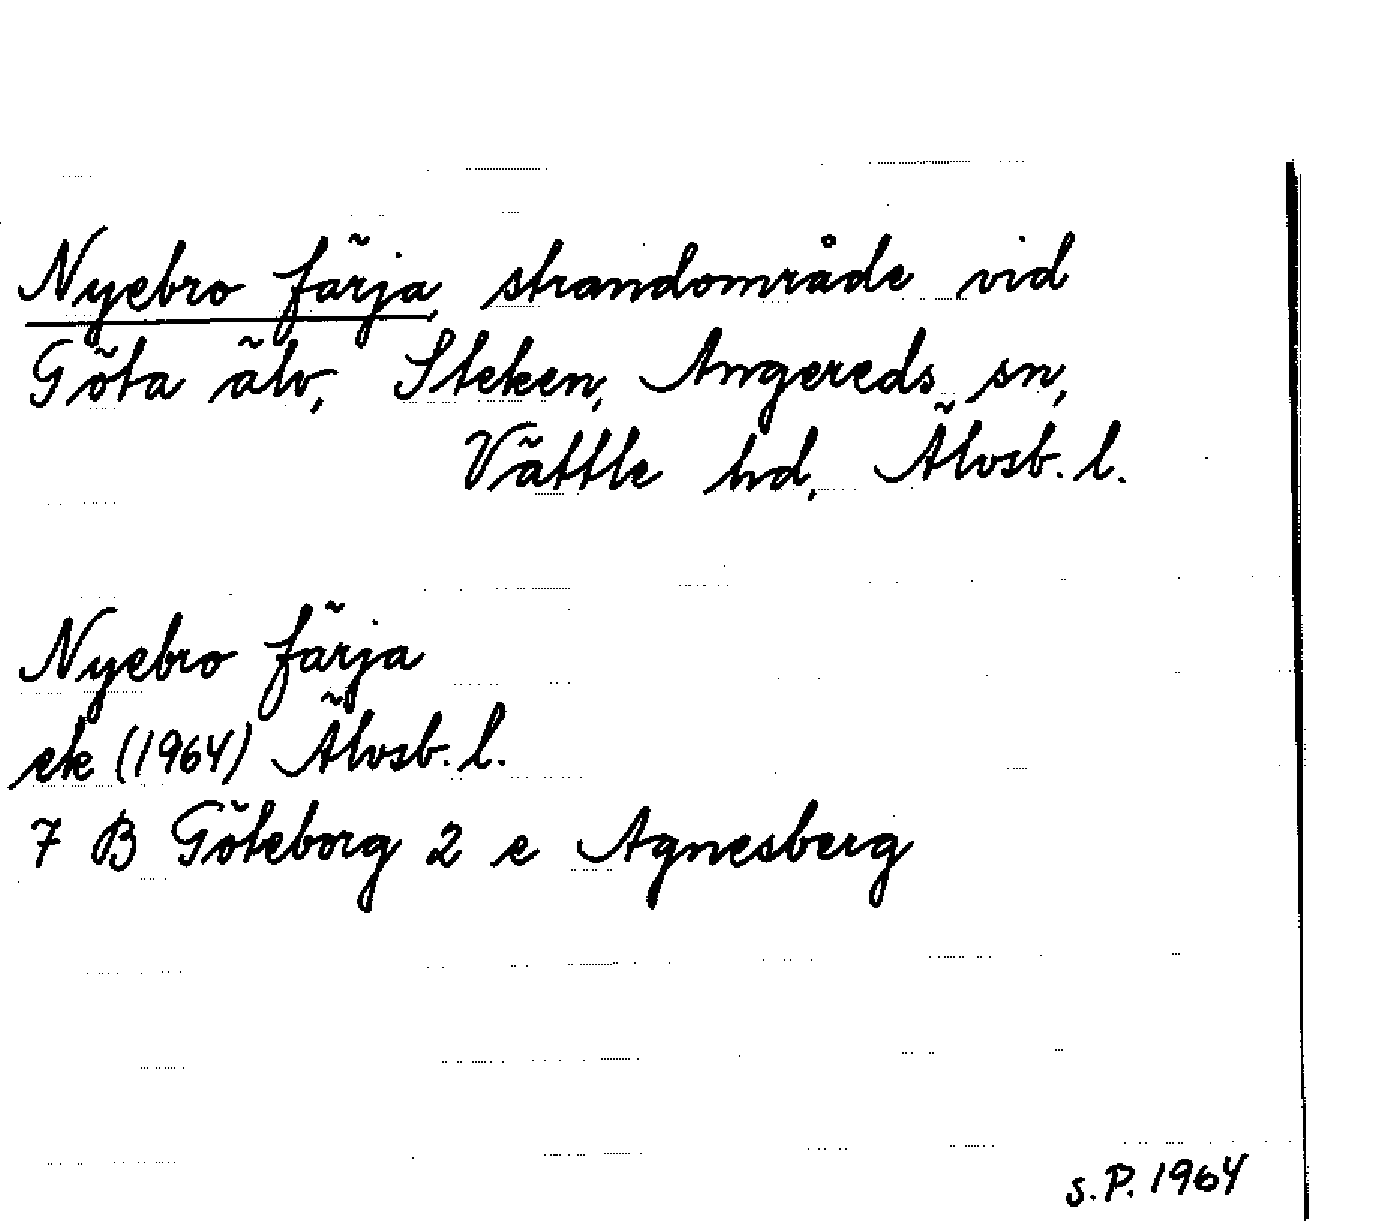 Nyebro färja, strandområde vid
Göta älv, Steken, Angereds sn,
Vättle hd, Älvsb. l.
Nyebro färja
ek (1964) Älvsb. l.
7 B Göteborg 2 e Agnesberg
S.P. 1964